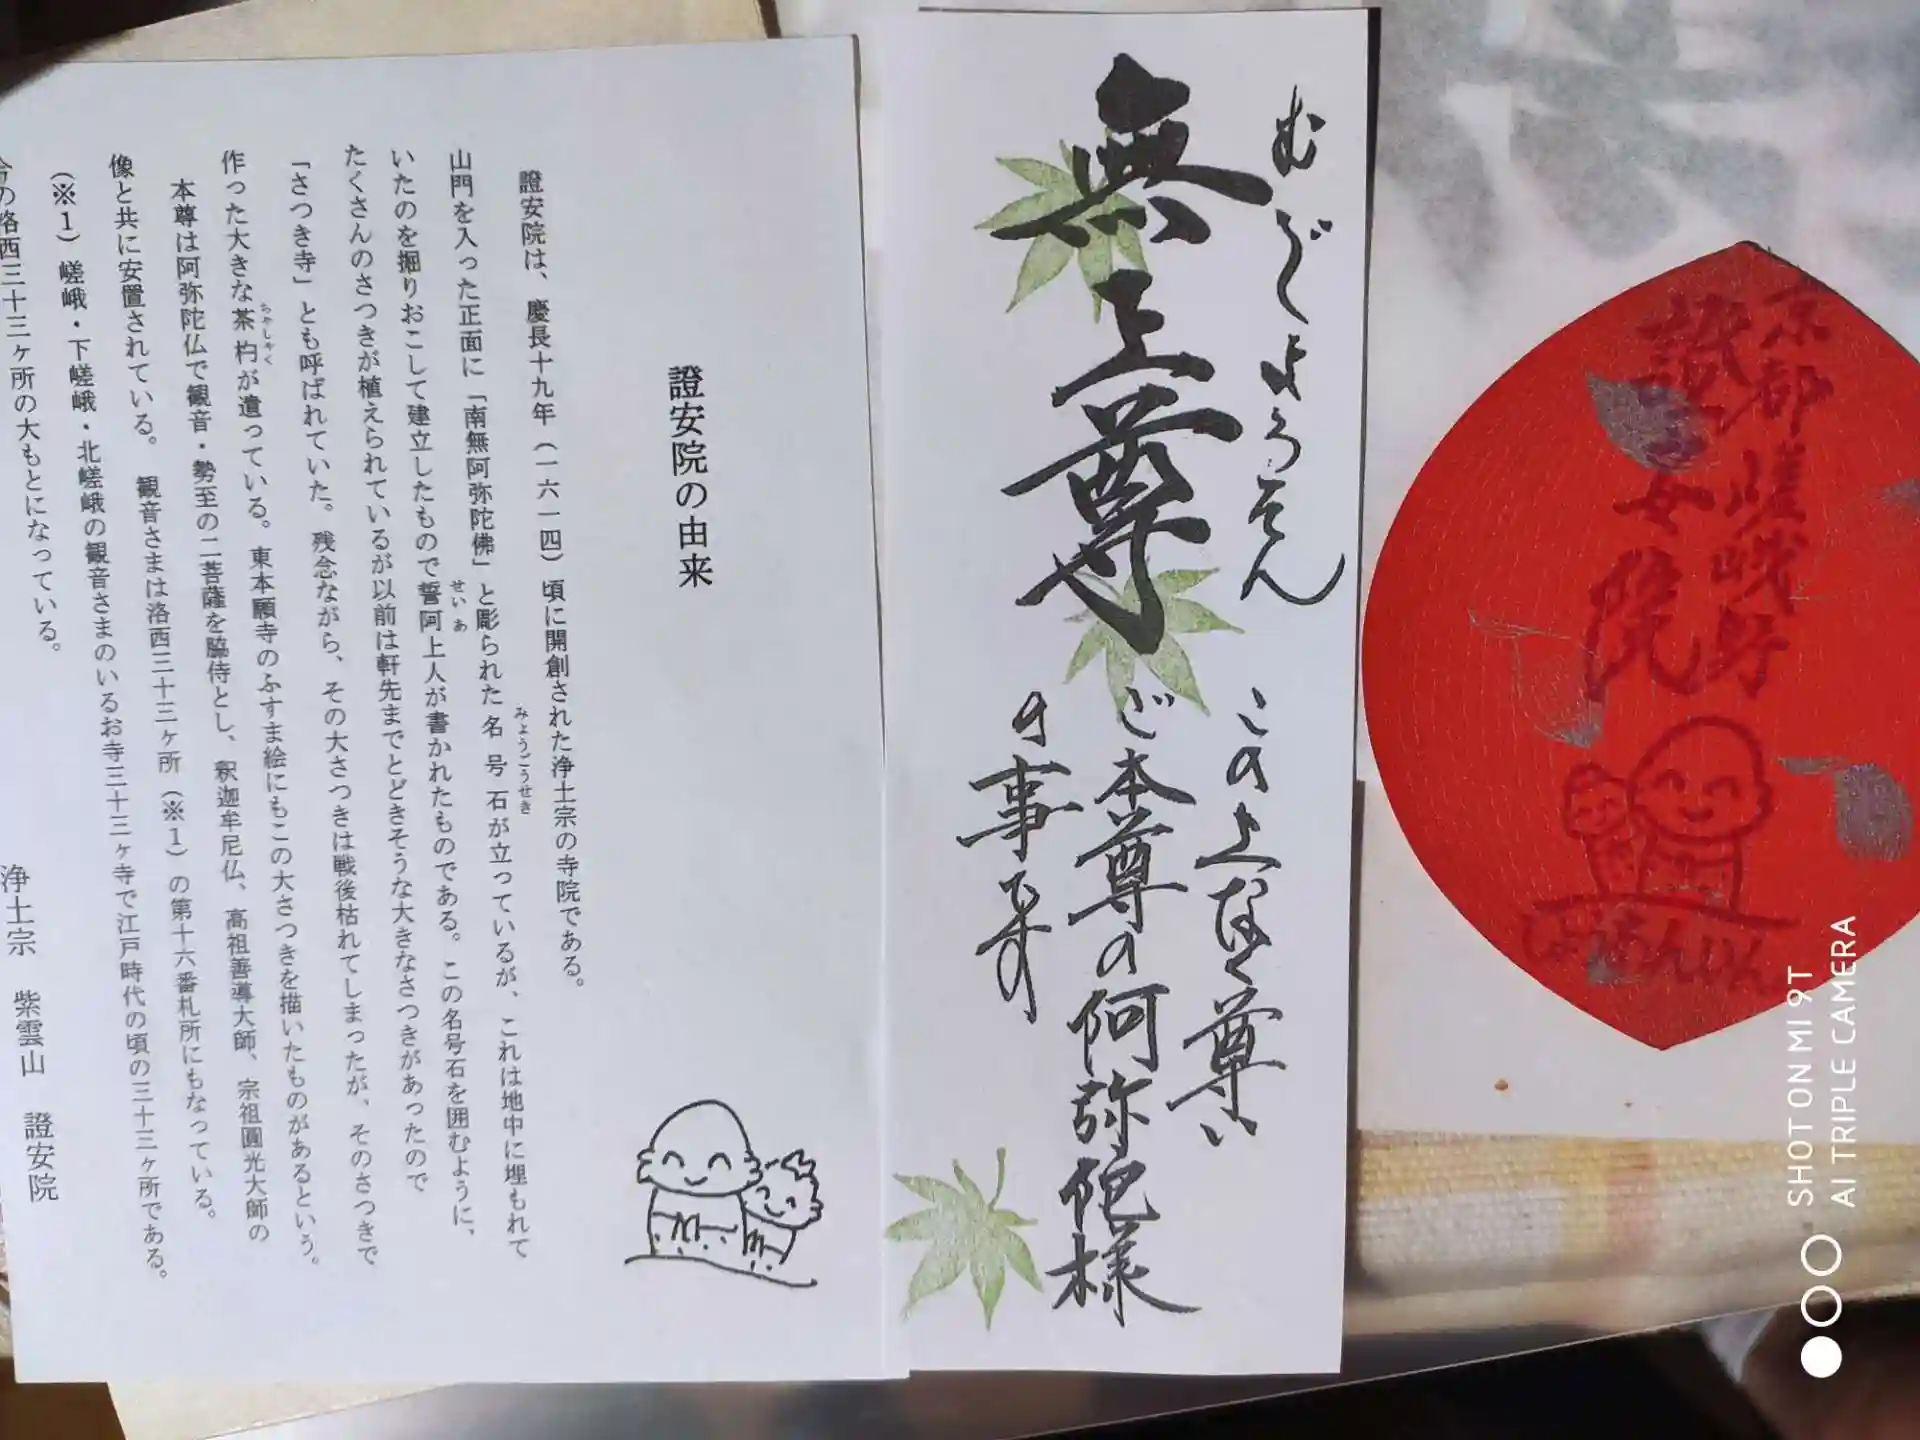 京都嵯峨野
證安院
しょうあんいん
むじょうそん
無上尊
この上なく尊い
ご本尊の阿弥陀様
の事です
證安院の由来
證安院は、慶長十九年（一六一四）頃に開創された浄土宗の寺院である。
山門を入った正面に「南無阿弥陀佛」と彫られた名号石が立っているが、これは地中に埋もれて
みょうごうせき
いたのを掘りおこして建立したもので誓阿上人が書かれたものである。この名号石を囲むように、
せいあ
たくさんのさつきが植えられているが以前は軒先までとどきそうな大きなさつきがあったので
「さつき寺」とも呼ばれていた。残念ながら、その大さつきは戦後枯れてしまったが、そのさつきで
作った大きな茶杓が遺っている。東本願寺のふすま絵にもこの大さつきを描いたものがあるという。
ちゃしゃく
本尊は阿弥陀仏で観音・勢至の二菩薩を脇侍とし、釈迦牟尼仏、高祖善導大師、宗祖圓光大師の
像と共に安置されている。観音さまは洛西三十三ヶ所（※１）の第十六番札所にもなっている。
（※１）嵯峨・下嵯峨・北嵯峨の観音さまのいるお寺三十三ヶ寺で江戸時代の頃の三十三ヶ所である。
今の洛西三十三ヶ所の大もとになっている。
浄土宗 紫雲山 證安院
SHOT ON MI 9T
AI TRIPLE CAMERA